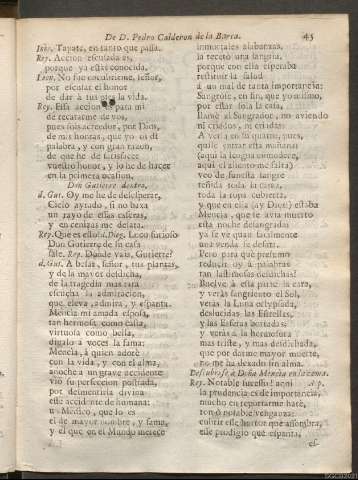 De D. Pedro Calderon de la Barca. 43
Inès. Tapate, en tanto que passa.
Rey. Accion escusada es,
porque ya està conocida.
Leon. No fue cocubrirme, señor,
por escusar el honor
de dar à tus pies la vida.
Rey. Essa accion es para mi
de recatarme de vos,
pues sois acreedor, por Dios,
de mis honras, que yo os di
palabra, y con gran razon,
de que he de satisfacer
vuestro honor, y lo he de hacer
en la primera ocasion.
Don Gutierre dentro.
d. Gut. Oy me he de desesperar,
Cielo ayrado, si no baxa
un rayo de essas esferas,
y en cenizas me desata.
Rey. Que es esto? d. Dieg. Loco furioso
Don Gutierre de su casa
sale. Rey. Dònde vais, Gutierre?
d. Gut. A besar, señor, tus plantas,
y de la mayor desdicha,
de la tragedia mas rara
escucha la admiracion,
que eleva, admira, y espanta.
Mencìa mi amada esposa,
tan hermosa como casta,
virtuosa como bella,
digalo à voces la fama:
Mencìa, à quien adorè
con la vida, y con el alma,
anoche à un grave accidente
viò su perfeccion postrada,
por desmentirla divina
este accidente de humana:
un Medico, que lo es
el de mayor nombre, y fama,
y el que en el Mundo merece
inmortales alabanzas,
la recetò una sangria,
porque con ella esperaba
restituir la salud
à un mal de tanta importancia:
Sangròse, en fin, que yo mismo,
por estàr sola la casa,
llamè al Sangrador, no aviendo
ni criados, ni criadas.
A verla en su quarto, pues,
quise entrar esta mañana:
(aqui la lengua enmudece,
aqui el aliento me falta)
veo de funesta sangre
teñida toda la cama,
toda la ropa cubierta,
y que en ella (ay Dios!) estaba
Mencìa, que se avia muerto
esta noche desangrada:
ya se ve quan facilmente
una venda se desata.
Pero para què presumo
reducir oy à palabras
tan lastimosas desdichas?
Buelve à esta parte la cara,
y veràs sangriento el Sol,
veràs la Luna eclypsada,
deslucidas las Estrellas,
y las Esferas borradas:
y veràs à la hermosura
mas triste, y mas desdichada,
que por darme mayor muerte,
no me ha dexado sin alma.
Descubrese à Doña Mencìa en la cama.
Rey. Notable sucesso! aqui Ap.
la prudencia es de importancia,
mucho en reportarme harè,
tomò notable venganza:
cubrir esse horror que assombra,
esse prodigio que espanta,
es-